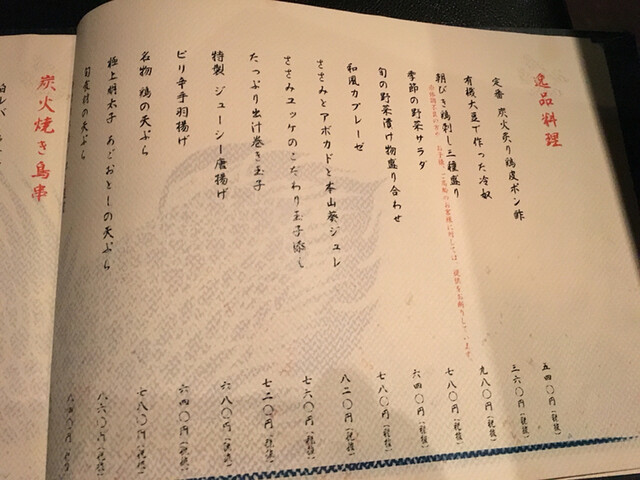 逸品料理
定番 炭火炙り鶏皮ポン酢 五四〇円(税抜)
有機大豆で作った冷奴 三六〇円(税抜)
朝びき鶏刺し三種盛り 九八〇円(税抜)
お子様、ご高齢のお客様に対しては、提供をお断りしています。
季節の野菜サラダ 七八〇円(税抜)
旬の野菜漬け物盛り合わせ 六四〇円(税抜)
和風カプレーゼ 七八〇円(税抜)
ささみとアボカドと本山葵ジュレ 八二〇円(税抜)
ささみユッケのこだわり玉子添え 七六〇円(税抜)
たっぷり出汁巻き玉子 七二〇円(税抜)
特製 ジューシー唐揚げ 六八〇円(税抜)
ピリ辛手羽揚げ 六四〇円(税抜)
名物 鶏の天ぷら 七八〇円(税抜)
極上明太子 あごおとしの天ぷら 八六〇円(税抜)
旬食材の天ぷら
炭火焼き鳥串